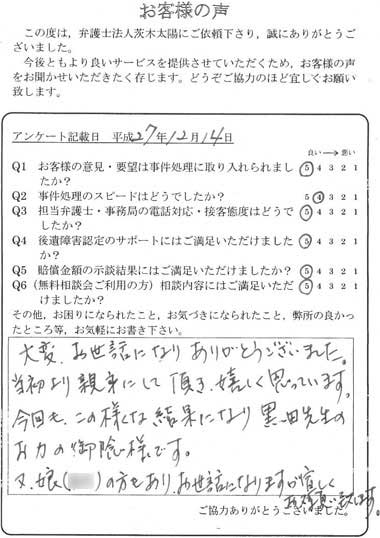 お客様の声
この度は，弁護士法人茨木太陽にご依頼下さり，誠にありがとうご
ざいました。
今後ともより良いサービスを提供させていただくため，お客様の声
をお聞かせいただきたく存じます。どうぞご協力のほど宜しくお願い
致します。
アンケート記載日 平成27年12月14日
良い→悪い
Q1 お客様の意見・要望は事件処理に取り入れられまし 5 4 3 2 1
たか？
Q2 事件処理のスピードはどうでしたか？ 5 4 3 2 1
Q3 担当弁護士・事務局の電話対応・接客態度はどうで 5 4 3 2 1
したか？
Q4 後遺障害認定のサポートにはご満足いただけました 5 4 3 2 1
か？
Q5 賠償金額の示談結果にはご満足いただけましたか？ 5 4 3 2 1
Q6（無料相談会ご利用の方）相談内容にはご満足いただ 5 4 3 2 1
けましたか？
その他，お困りになられたこと，お気づきになられたこと，弊所の良かっ
たところ等，お気軽にお書き下さい。
大変、お世話になりありがとうございました。
当初より親身にして頂き、嬉しく思っています。
今回も、この様な結果になり黒田先生の
お力の御陰様です。
又、娘( )の方もあり、お世話になりますが宜しく
お願い致します。
ご協力ありがとうございました。